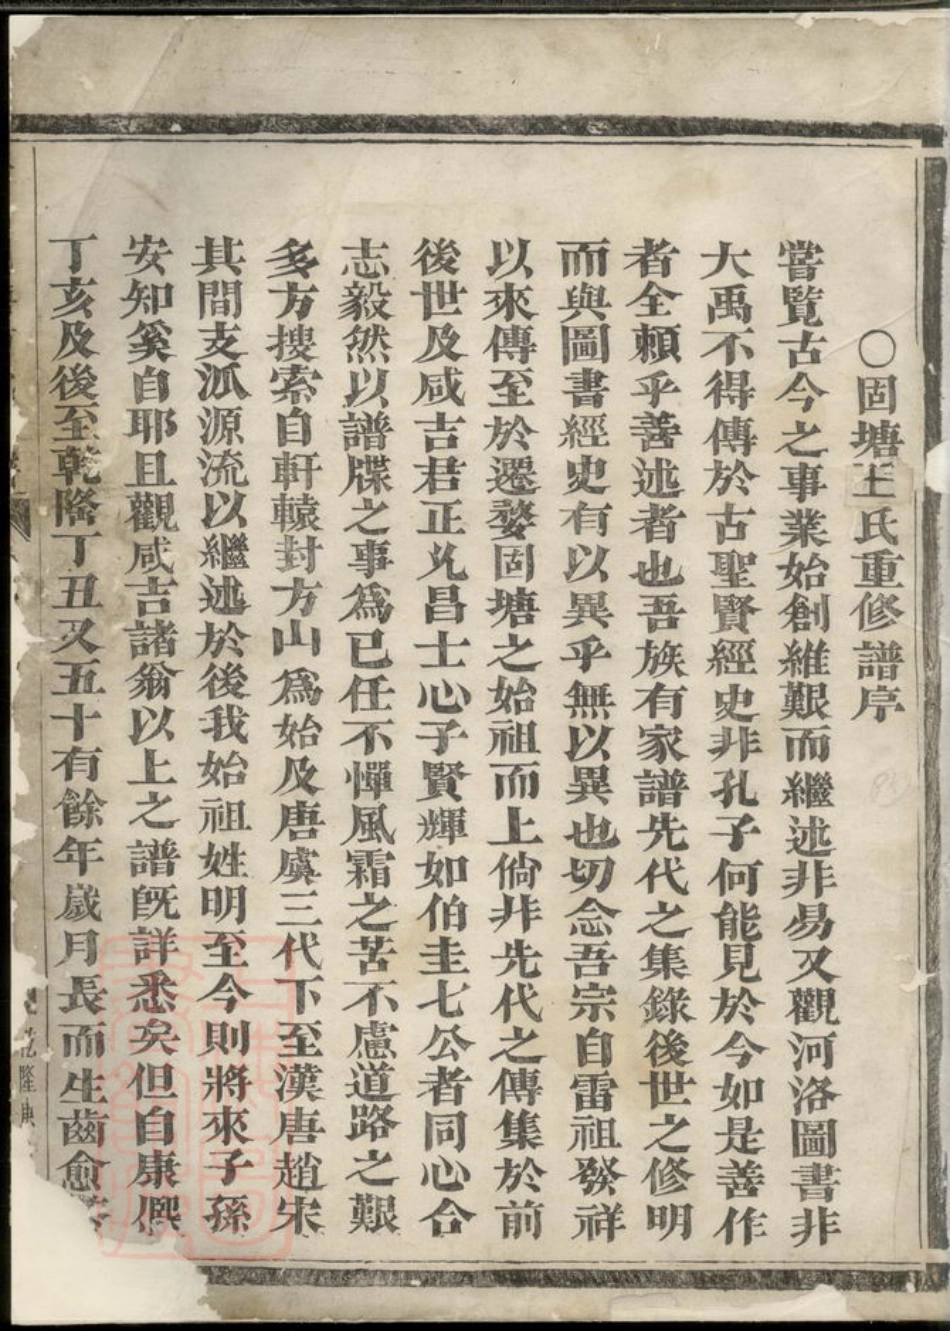 ○固塘王氏重修譜序
嘗覽古今之事業始創維艱而繼述非易又觀河洛圖書非
大禹不得傳於古聖賢經史非孔子何能見於今如是善作
者全頼乎善述者也吾族有家譜先代之集錄後世之修明
而與圖書經史有以異乎無以異也切念吾宗自雷祖發祥
以來傳至於遷婺固塘之始祖而上倘非先代之傳集於前
後世及咸吉君正允昌士心子賢輝如伯圭七公者同心合
志毅然以譜牒之事爲已任不憚風霜之苦不慮道路之艱
多方搜索自軒轅封方山爲始及唐虞三代下至漢唐趙宋
其間支派源流以繼述於後我始祖姓明至今則將來子孫
安知奚自耶且觀咸吉諸翁以上之譜旣詳悉矣但自康熙
丁亥及後至乾隆丁丑又五十有餘年歲月長而生齒愈